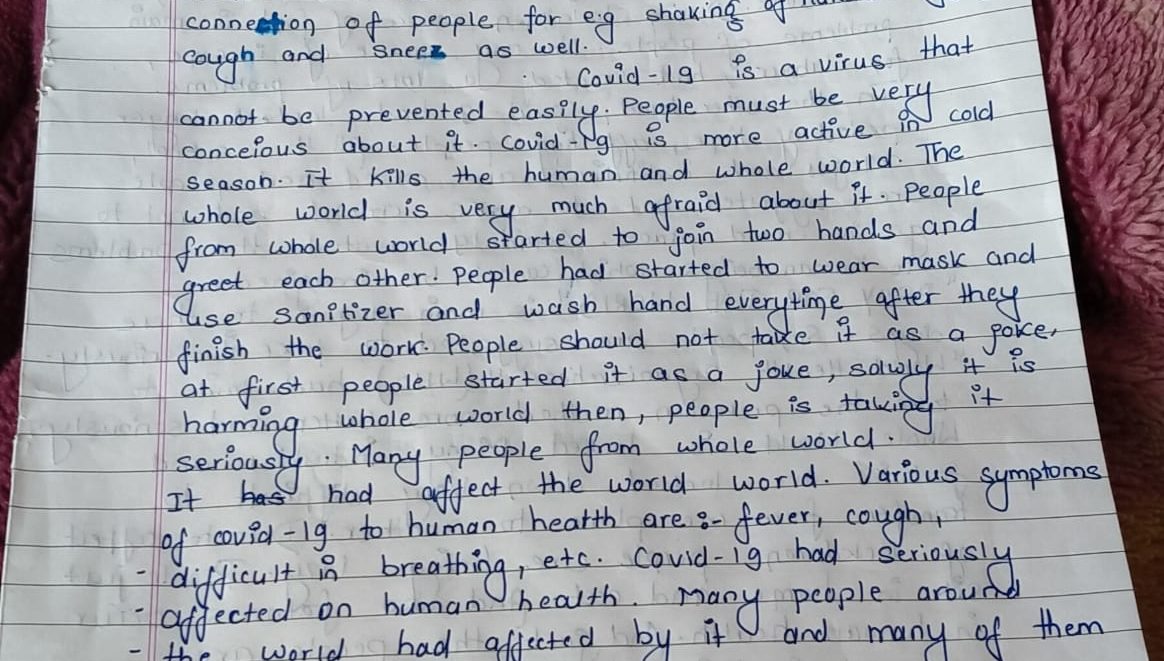 connection of people for e.g shaking of
cough and sneez as well.
Covid-19 is a virus that
cannot be prevented easily. People must be very
conceious about it. Covid-19 is more active in cold
season. It kills the human and whole world. The
whole world is very much afraid about it. People
from whole world started to join two hands and
greet each other. People had started to wear mask and
use sanitizer and wash hand everytime after they
finish the work. People should not take it as a joke,
at first people started it as a joke, solwly it is
harming whole world then, people is taking it
seriously. Many people from whole world.
It has had affect the world world. Various symptoms
of covid-19 to human heatth are :- fever, cough,
- difficult in breathing, etc. Covid-19 had seriously
- affected on human health. Many people around
- the world had affected by it and many of them